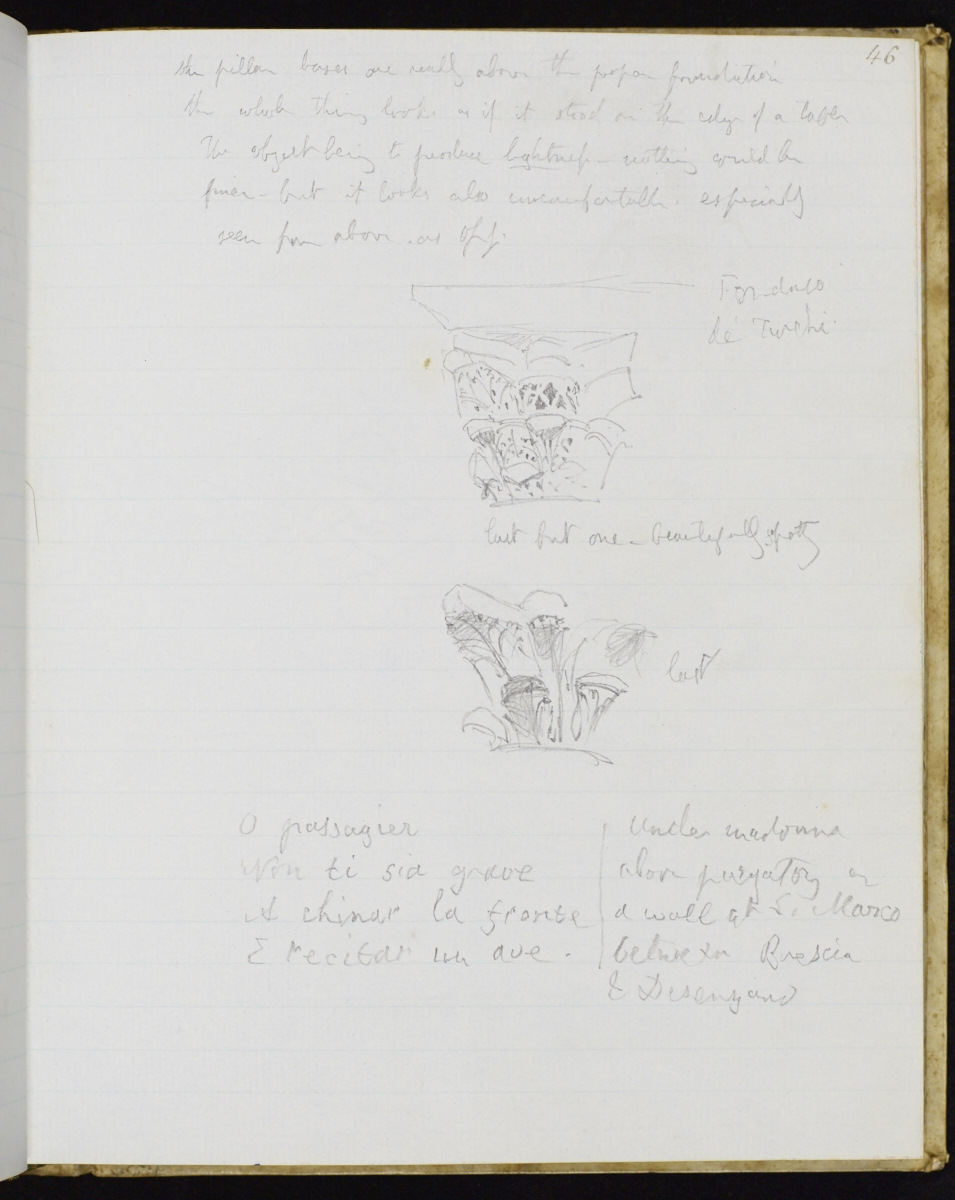 46
the pillar bases are really above the proper foundation
the whole thing looks as if it stood on the edge of a table
The object being to produce lightness - nothing could be
finer - but it looks also uncomfortable. especially
seen from above. as opp.
Fondaco
de Turchi.
last but one - beautifully spotty
last
O passagier
Non ti sia grave
A chinar la fronte
E recitar un ave.
Under madonna
above purgatory on
a wall at S. Marco
between Brescia
& Desenzano